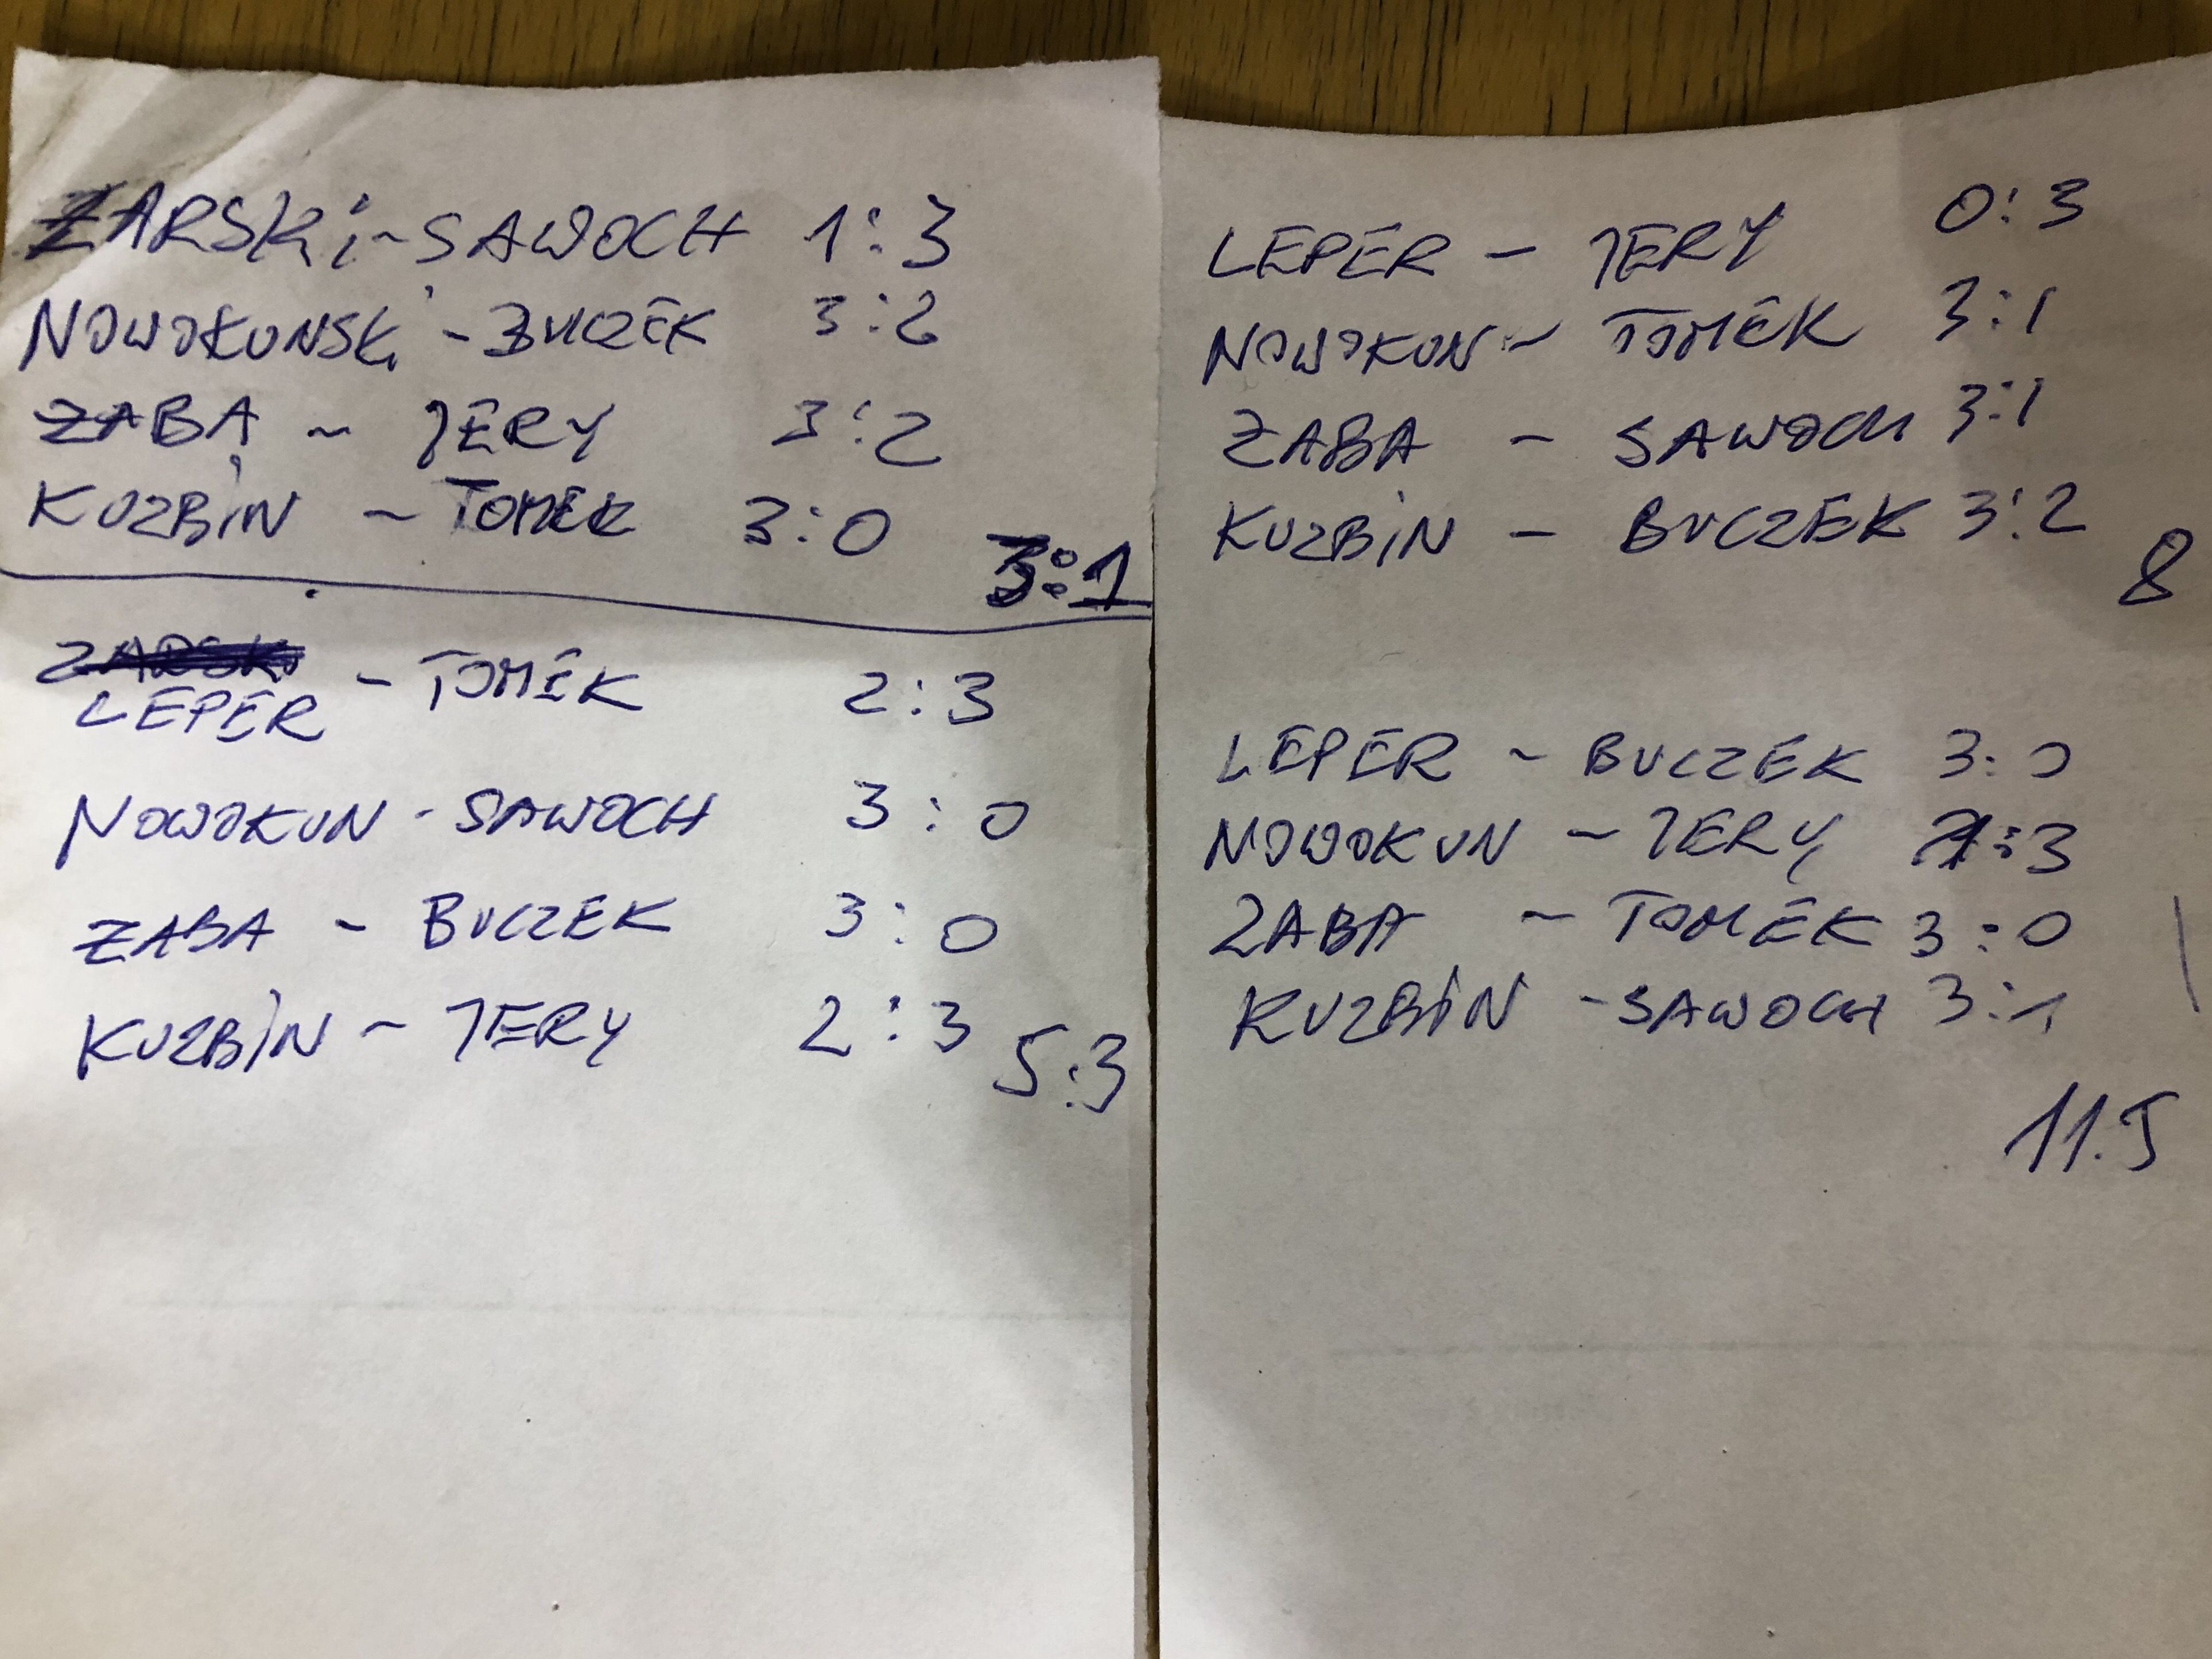 ŻARSKi - SAWOCH 1:3
NOWOKUNSKi - BUCZEK 3:2
ŻABA - JERY 3:2
KUZBIN - TOMEK 3:0
3:1
ZARSKi
LEPER - TOMEK 2:3
NOWOKUN - SAWOCH 3:0
ŻABA - BUCZEK 3:0
KUZBIN - JERY 2:3
5:3
LEPER - JERY 0:3
NOWOKUN - TOMEK 3:1
ŻABA - SAWOCH 3:1
KUZBIN - BUCZEK 3:2
8
LEPER - BUCZEK 3:0
NOWOKUN - JERY :3
ZABA - TOMEK 3:0
KUZBIN - SAWOCH 3:1
11.5